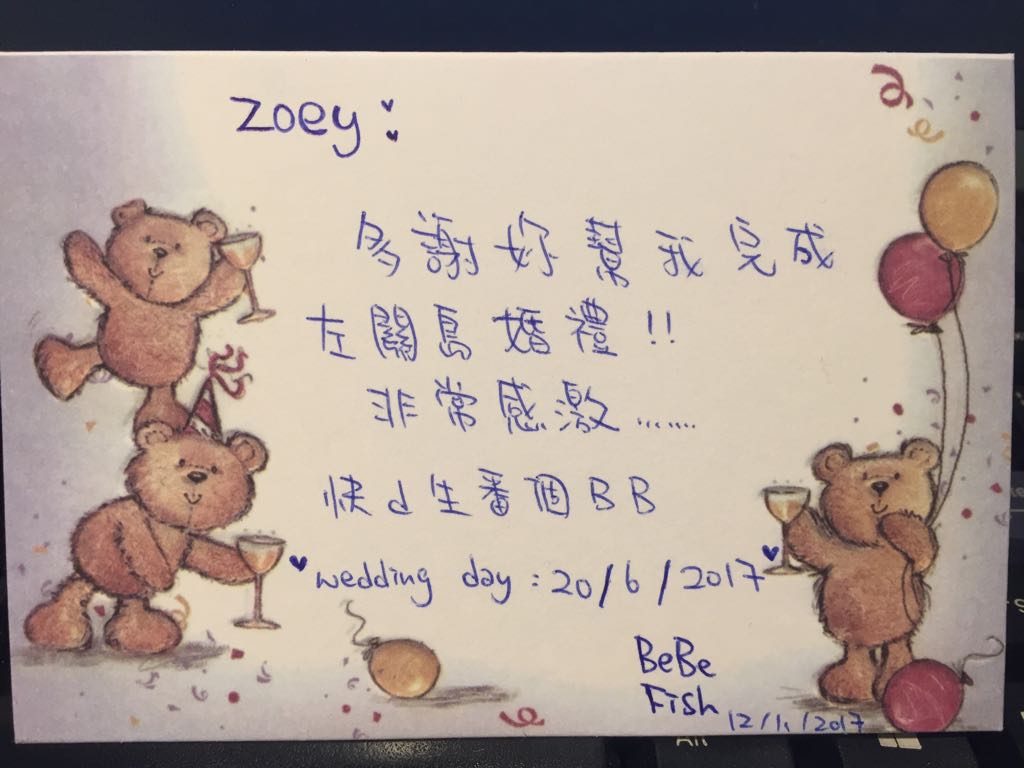 Zoey:
多謝妳幫我完成
左關島婚禮!!
非常感激.......
快d生番個BB
wedding day : 20/6/2017
BeBe
Fish
12/11/2017
Alt